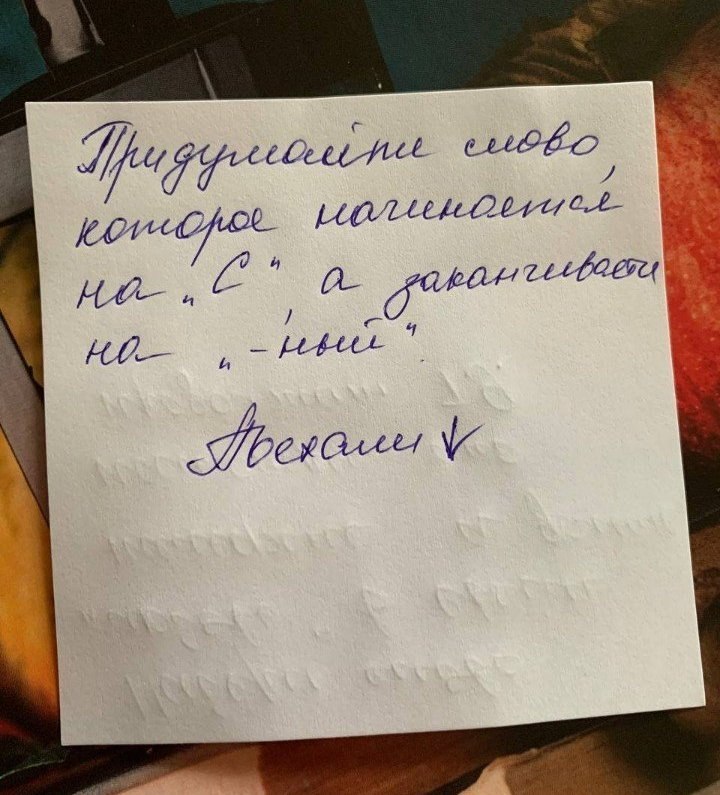 Придумайте слово,
которое начинается
на „С“, а заканчивается
на „-ный“.
Поехали ↓